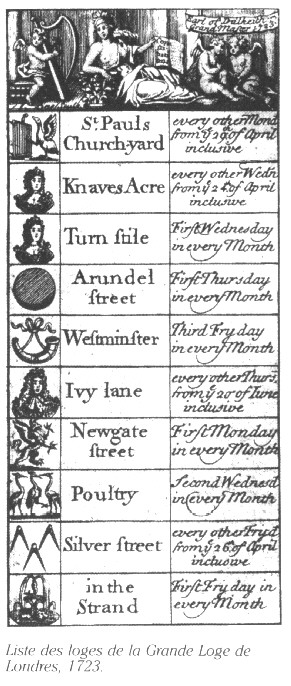 Earl of Dalkeith
Grand Maſter 1723
St. Pauls
Church-yard
every other Mond
from ye 29 of April
incluſive
Knaves Acre
every other Wedn
from ye 24 of April
incluſive
Turn ſtile
Firſt Wednesday
in every Month
Arundel
ſtreet
Firſt Thurſday
in every Month
Weſtminſter
Third Fryday
in every Month
Ivy lane
every other Thurſ,
from ye 20 of June
incluſive
Newgate
ſtreet
Firſt Monday
in every Month
Poultry
Second Wednesd
in every Month
Silver ſtreet
every other Fryd
from ye 26 of April
incluſive
in the
Strand
Firſt Fryday in
every Month
Liste des loges de la Grande Loge de
Londres, 1723.